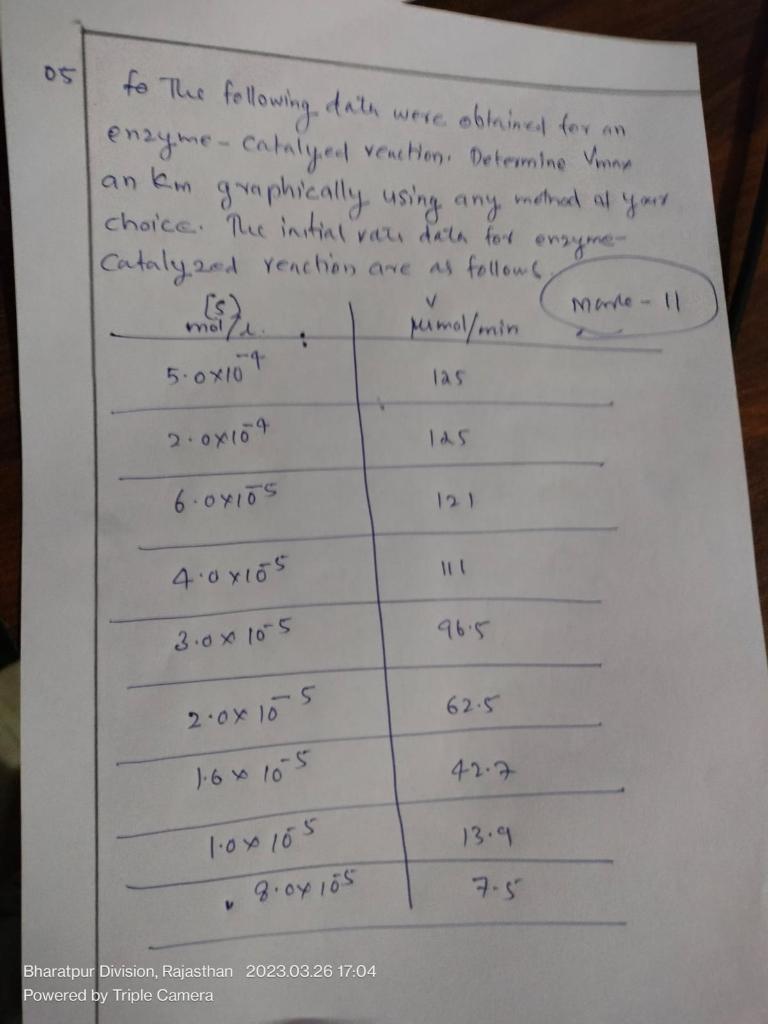 05
fo The following data were obtained for an
enzyme - catalyzed reaction. Determine Vmax
an Km graphically using any method of your
choice. The initial rate data for enzyme-
Catalyzed reaction are as follows.
Marke - 11
[S] v
mol/L. : µmol/min
5.0x10⁻⁴ 125
2.0x10⁻⁴ 125
6.0x10⁻⁵ 121
4.0x10⁻⁵ 111
3.0x10⁻⁵ 96.5
2.0x10⁻⁵ 62.5
1.6x10⁻⁵ 42.7
1.0x10⁻⁵ 13.9
8.0x10⁻⁵ 7.5
Bharatpur Division, Rajasthan 2023.03.26 17:04
Powered by Triple Camera